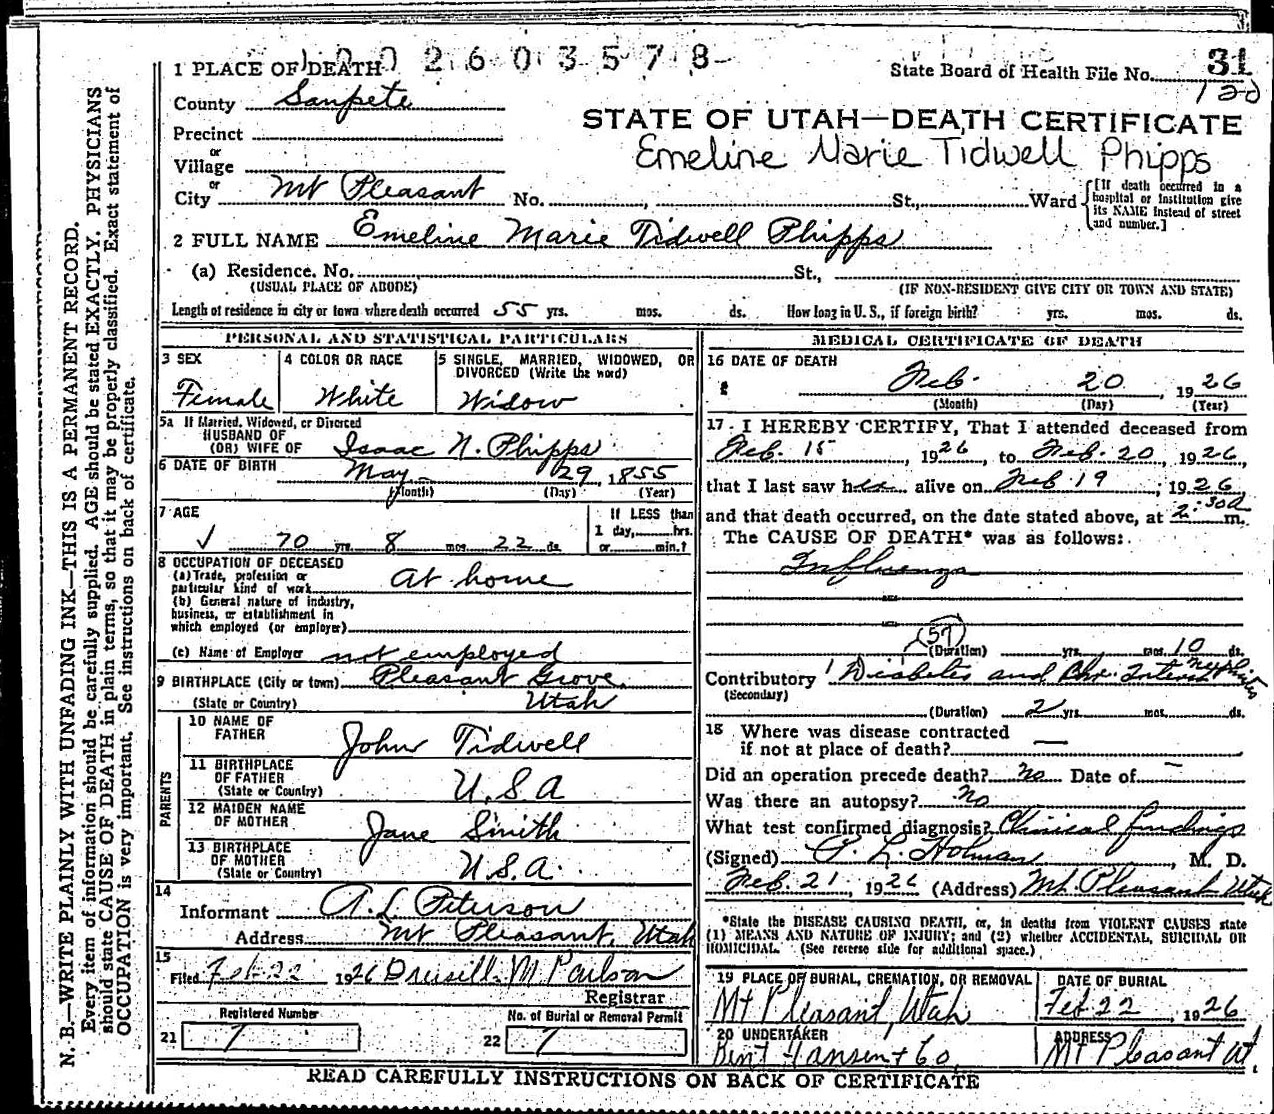 1 PLACE OF DEATH
2 6 0 3 5 7 8
State Board of Health File No. 31
120
County Sanpete
STATE OF UTAH—DEATH CERTIFICATE
Precinct
Emeline Marie Tidwell Phipps
or
Village
or
City Mt Pleasant No. , St., Ward
[If death occurred in a hospital or institution give its NAME instead of street and number.]
2 FULL NAME Emeline Marie Tidwell Phipps
(a) Residence. No. St.,
(USUAL PLACE OF ABODE) (IF NON-RESIDENT GIVE CITY OR TOWN AND STATE)
Length of residence in city or town where death occurred 55 yrs. mos. ds. How long in U. S., if foreign birth? yrs. mos. ds.
PERSONAL AND STATISTICAL PARTICULARS
3 SEX
Female
4 COLOR OR RACE
White
5 SINGLE, MARRIED, WIDOWED, OR DIVORCED (Write the word)
Widow
5a If Married, Widowed, or Divorced
HUSBAND OF
(OR) WIFE OF Isaac N. Phipps
6 DATE OF BIRTH May 29, 1855
(Month) (Day) (Year)
7 AGE
70 yrs. 8 mos. 22 ds.
If LESS than
1 day, hrs.
or min.?
8 OCCUPATION OF DECEASED
(a) Trade, profession or
particular kind of work At home
(b) General nature of industry,
business, or establishment in
which employed (or employer)
(c) Name of Employer not employed
9 BIRTHPLACE (City or town) Pleasant Grove,
(State or Country) Utah
PARENTS
10 NAME OF
FATHER John Tidwell
11 BIRTHPLACE
OF FATHER
(State or Country) U.S.A
12 MAIDEN NAME
OF MOTHER Jane Smith
13 BIRTHPLACE
OF MOTHER
(State or Country) U.S.A.
14
Informant A. L Peterson
Address Mt Pleasant, Utah
15
Filed Feb 22 1926 M Paulson
Registrar
Registered Number
21 7
No. of Burial or Removal Permit
22 7
MEDICAL CERTIFICATE OF DEATH
16 DATE OF DEATH
Feb. 20, 1926
(Month) (Day) (Year)
17 I HEREBY CERTIFY, That I attended deceased from
Feb. 15, 1926, to Feb. 20, 1926,
that I last saw her alive on Feb 19, 1926,
and that death occurred, on the date stated above, at 2:30a m.
The CAUSE OF DEATH* was as follows:
Influenza
(57)
(Duration) yrs. mos. 10 ds.
Contributory Diabetes and Chr. Inters Nephritis
(Secondary)
(Duration) 2 yrs. mos. ds.
18 Where was disease contracted
if not at place of death? —
Did an operation precede death? No Date of —
Was there an autopsy? No
What test confirmed diagnosis? Clinical findings
(Signed) P. L. Holman, M. D.
Feb. 21, 1926 (Address) Mt. Pleasant Utah
*State the DISEASE CAUSING DEATH, or, in deaths from VIOLENT CAUSES state
(1) MEANS AND NATURE OF INJURY; and (2) whether ACCIDENTAL, SUICIDAL OR
HOMICIDAL. (See reverse side for additional space.)
19 PLACE OF BURIAL, CREMATION, OR REMOVAL
Mt Pleasant, Utah
DATE OF BURIAL
Feb 22, 1926
20 UNDERTAKER
Hansen & Co.
ADDRESS
Mt Pleasant Ut.
READ CAREFULLY INSTRUCTIONS ON BACK OF CERTIFICATE
N. B.—WRITE PLAINLY WITH UNFADING INK—THIS IS A PERMANENT RECORD.
Every item of information should be carefully supplied. AGE should be stated EXACTLY. PHYSICIANS
should state CAUSE OF DEATH in plain terms, so that it may be properly classified. Exact statement of
OCCUPATION is very important. See instructions on back of certificate.